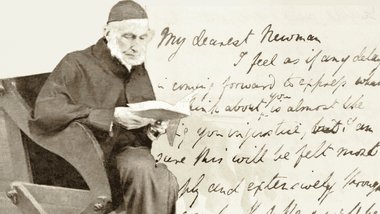 My dearest Newman
I feel as if any delay
in coming forward to express what
think about yr is almost like
you injustice, but I am
sure this will be felt most
and extensively through